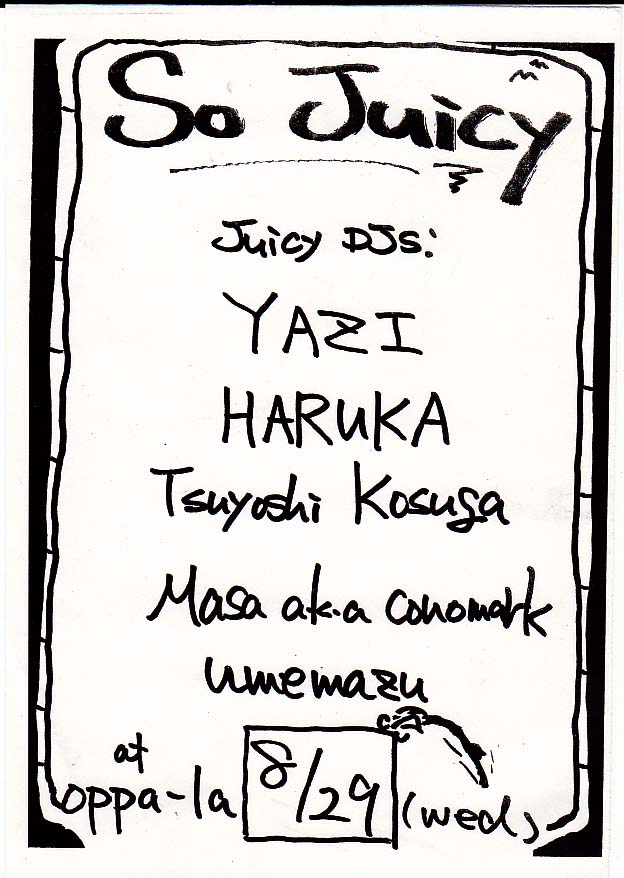 So Juicy
Juicy DJs:
YAZI
HARUKA
Tsuyoshi Kosuga
Masa a.k.a conomark
umemazu
at
oppa-la 8/29 (wed)